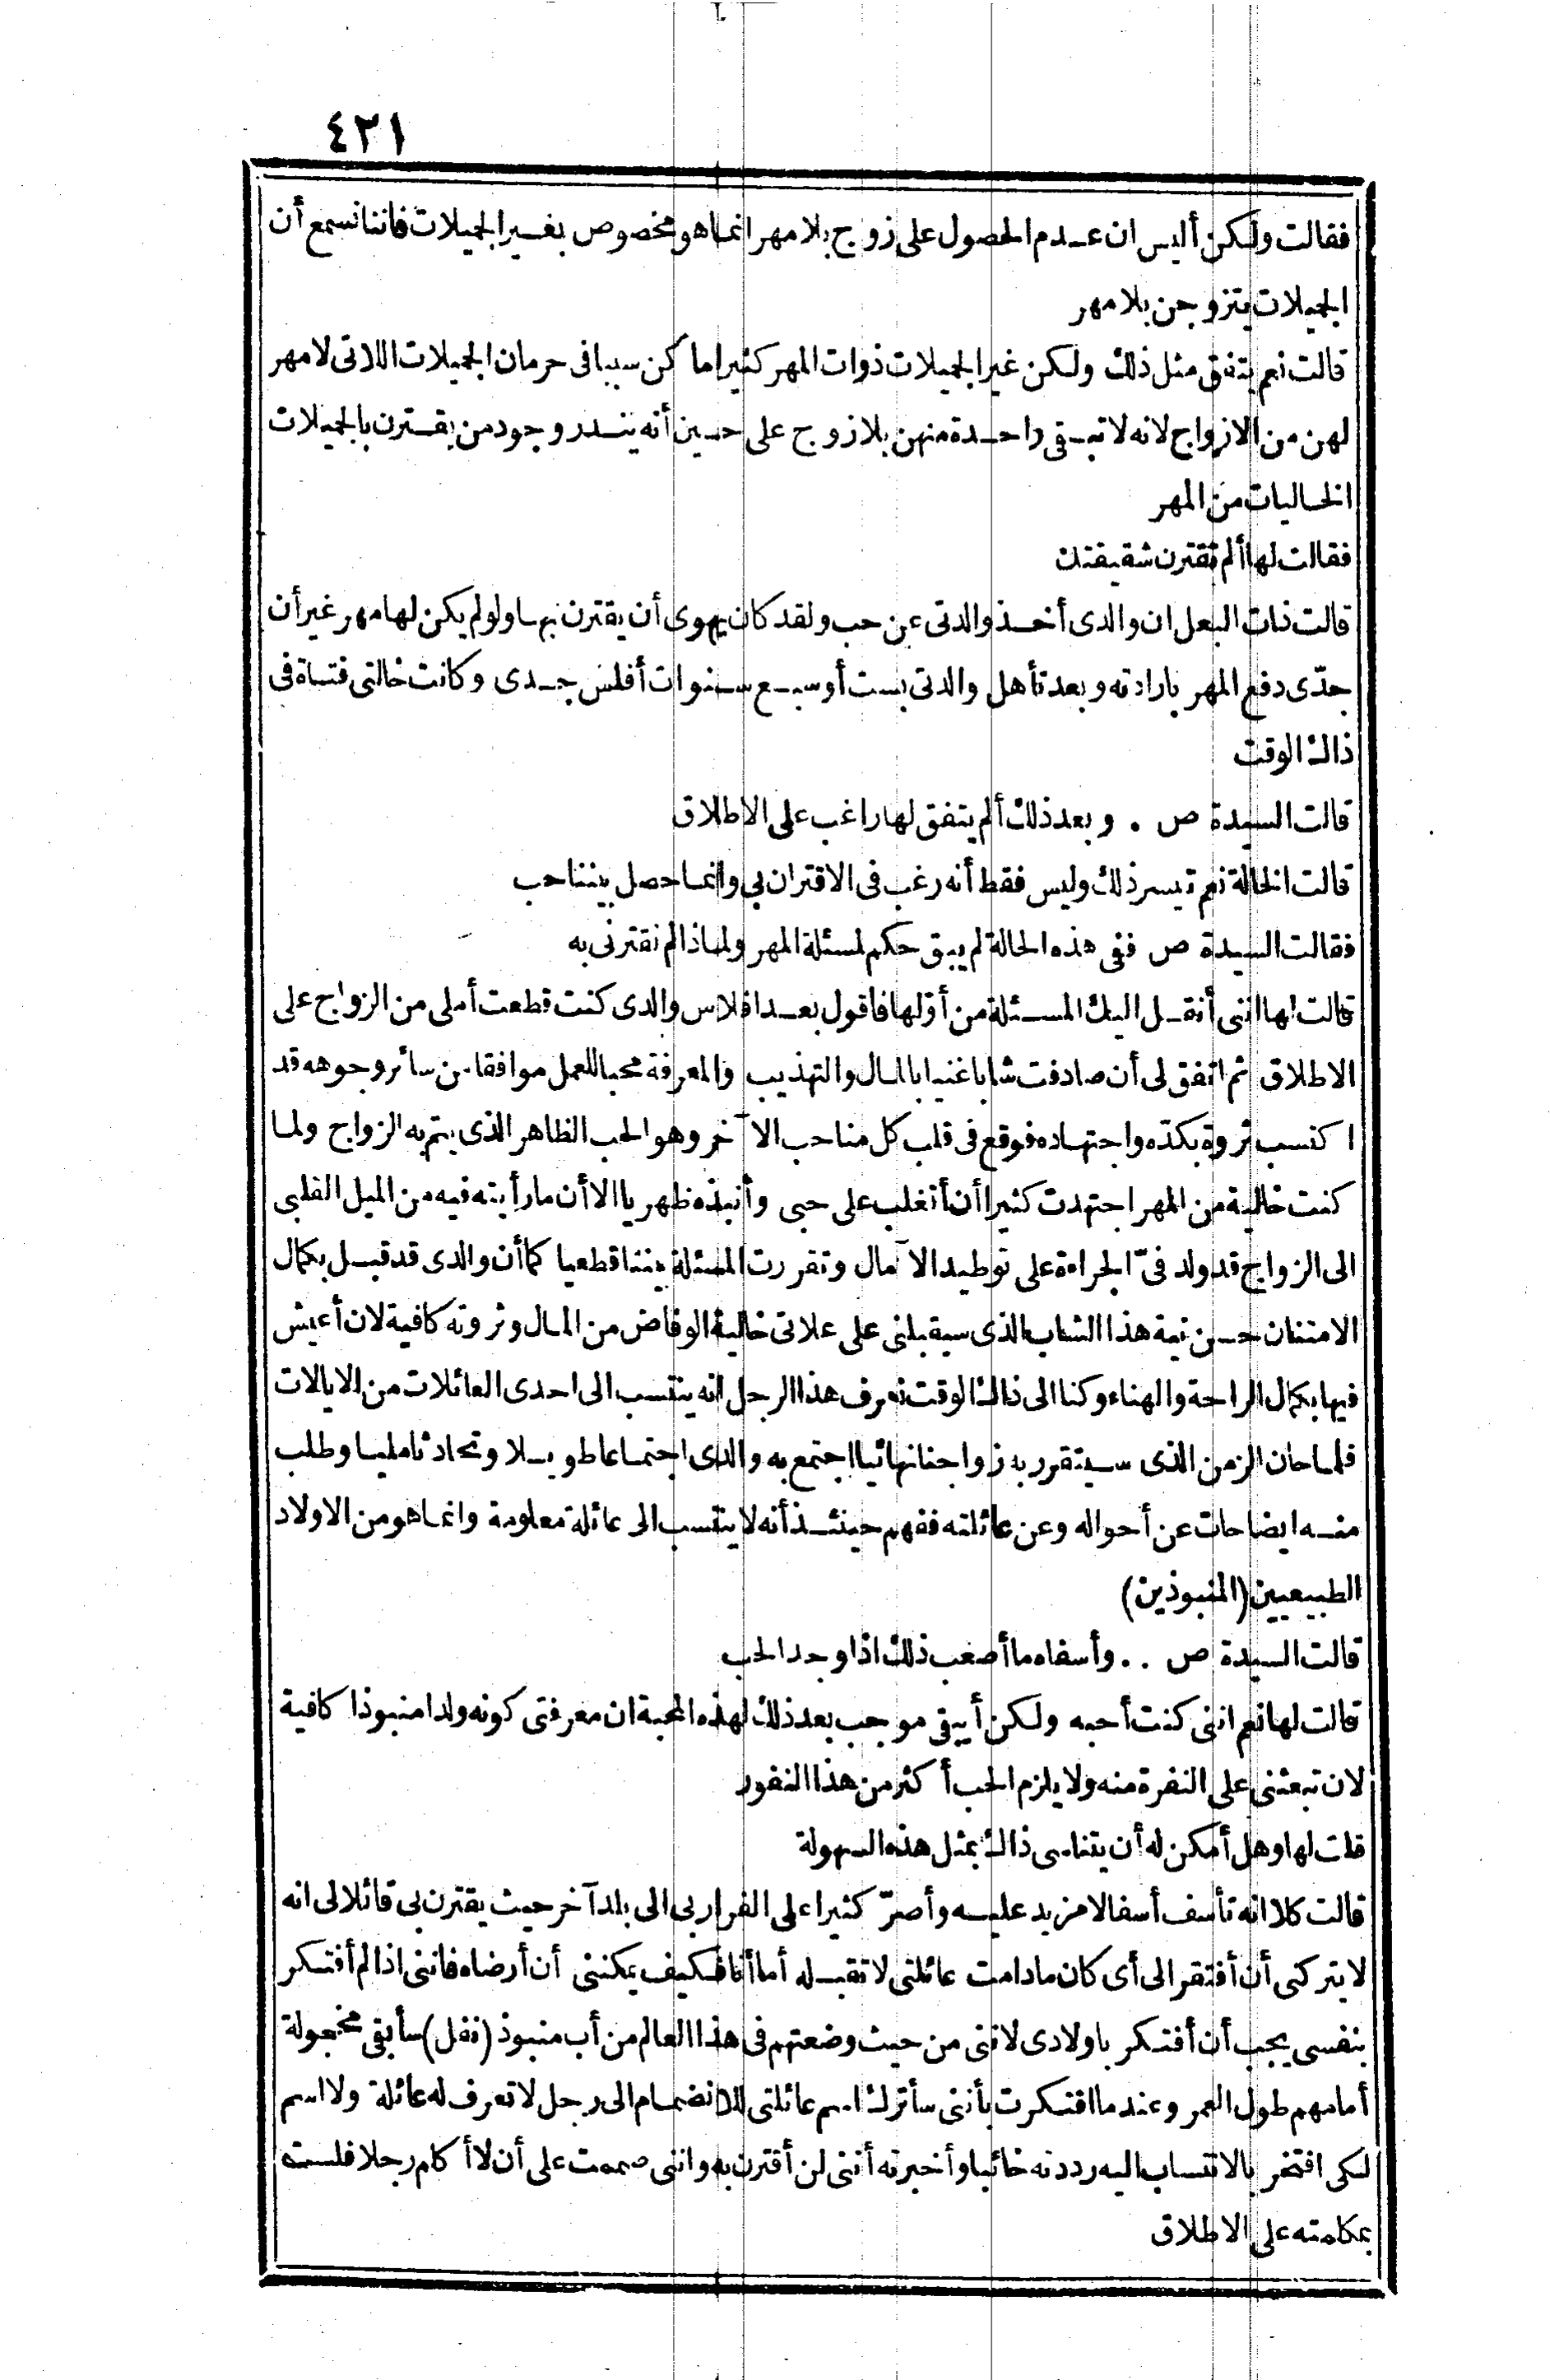 ٤٣١
فقالت ولكن أليس ان عدم الحصول على زوج بلا مهر انما هو مخصوص بغير الجميلات فاننا نسمع أن
الجميلات يتزوجن بلا مهر
قالت نعم يتفق مثل ذلك ولكن غير الجميلات ذوات المهر كثيرا ما كن سببا فى حرمان الجميلات اللاتى لا مهر
لهن من الازواج لانه لا تبقى واحدة منهن بلا زوج على حين أنه يندر وجود من يقترن بالجميلات
الخاليات من المهر
فقالت لها ألم تقترن شقيقتك
قالت ذات البعل ان والدى أخذ والدتى عن حب ولقد كان يهوى أن يقترن بها ولو لم يكن لها مهر غير أن
جدّى دفع المهر بارادته وبعد تأهل والدتى بست أو سبع سنوات أفلس جدى وكانت خالتى فتاة فى
ذاك الوقت
قالت السيدة ص . وبعد ذلك ألم يتفق لها راغب على الاطلاق
قالت الخالة نعم تيسر ذلك وليس فقط أنه رغب فى الاقتران بى وانما حصل بيننا حب
فقالت السيدة ص ففى هذه الحالة لم يبق حكم لمسئلة المهر ولماذا لم تقترنى به
قالت لها اننى أنقل اليك المسئلة من أوّلها فاقول بعد افلاس والدى كنت قطعت أملى من الزواج على
الاطلاق ثم اتفق لى أن صادفت شابا غنيا بالمال والتهذيب والمعرفة محبا للعمل موافقا من سائر وجوهه قد
اكتسب ثروة بكدّه واجتهاده فوقع فى قلب كل منا حب الآخر وهو الحب الظاهر الذى يتم به الزواج ولما
كنت خالية من المهر اجتهدت كثيرا أن أتغلب على حبى وأنبذه ظهريا الا أن ما رأيته فيه من الميل القلبى
الى الزواج قد ولد فىّ الجراءة على توطيد الآمال وتقررت المسئلة بيننا قطعيا كما أن والدى قد قبل بكمال
الامتنان حسن نية هذا الشاب الذى سيقبلنى على علاتى خالية الوفاض من المال وثروته كافية لان أعيش
فيها بكمال الراحة والهناء وكنا الى ذاك الوقت نعرف هذا الرجل انه ينتسب الى احدى العائلات من الايالات
فلما حان الزمن الذى سيتقرر به زواجنا نهائيا اجتمع به والدى اجتماعا طويلا وتحادثا مليا وطلب
منه ايضاحات عن أحواله وعن عائلته ففهم حينئذ أنه لا ينتسب الى عائلة معلومة وانما هو من الاولاد
الطبيعيين (المنبوذين)
قالت السيدة ص . . وأسفاه ما أصعب ذلك اذا وجد الحب
قالت لها نعم اننى كنت أحبه ولكن أيبقى موجب بعد ذلك لهذه المحبة ان معرفتى كونه ولدا منبوذا كافية
لان تبعثنى على النفرة منه ولا يلزم الحب أكثر من هذا النفور
قلت لها وهل أمكن له أن يتناسى ذاك بمثل هذه السهولة
قالت كلا انه تأسف أسفا لا مزيد عليه وأصرّ كثيرا على الفرار بى الى بلد آخر حيث يقترن بى قائلا لى انه
لا يتركنى أن أفتقر الى أى كان مادامت عائلتى لا تقبله أما أنا فكيف يمكننى أن أرضاه فاننى اذا لم أفتكر
بنفسى يجب أن أفتكر باولادى لاننى من حيث وضعتهم فى هذا العالم من أب منبوذ (نغل) سأبقى مخجولة
أمامهم طول العمر وعندما افتكرت بأننى سأترك اسم عائلتى للانضمام الى رجل لا تعرف له عائلة ولا اسم
لكى افتخر بالانتساب اليه رددته خائبا وأخبرته أننى لن أقترن به واننى صممت على أن لا أكلم رجلا فلست
بمكلمته على الاطلاق